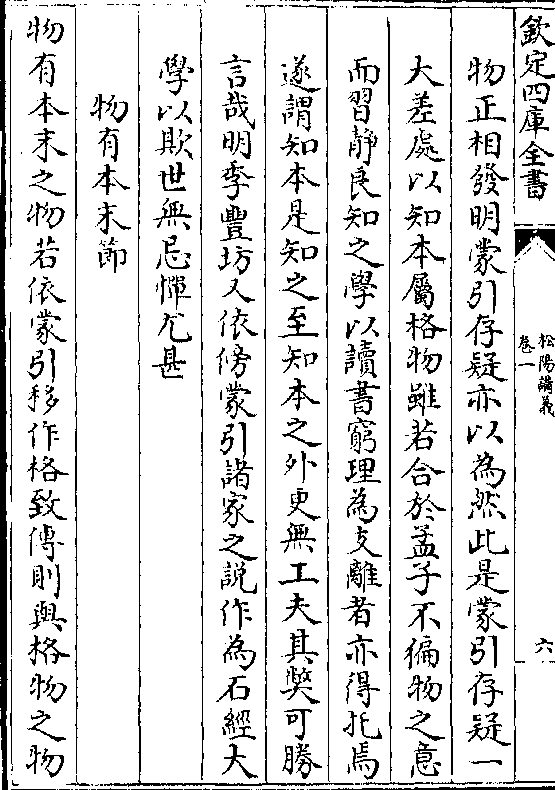 欽定四庫全書
松陽講義
卷一
六
物正相發明蒙引存疑亦以為然此是蒙引存疑一
大差處以知本屬格物雖若合於孟子不徧物之意
而習静良知之學以讀書窮理為支離者亦得托焉
遂謂知本是知之至知本之外更無工夫其獘可勝
言哉明季豐坊又依傍蒙引諸家之説作為石經大
學以欺世無忌憚尤甚
物有本末節
物有本末之物若依蒙引移作格致傳則與格物之物